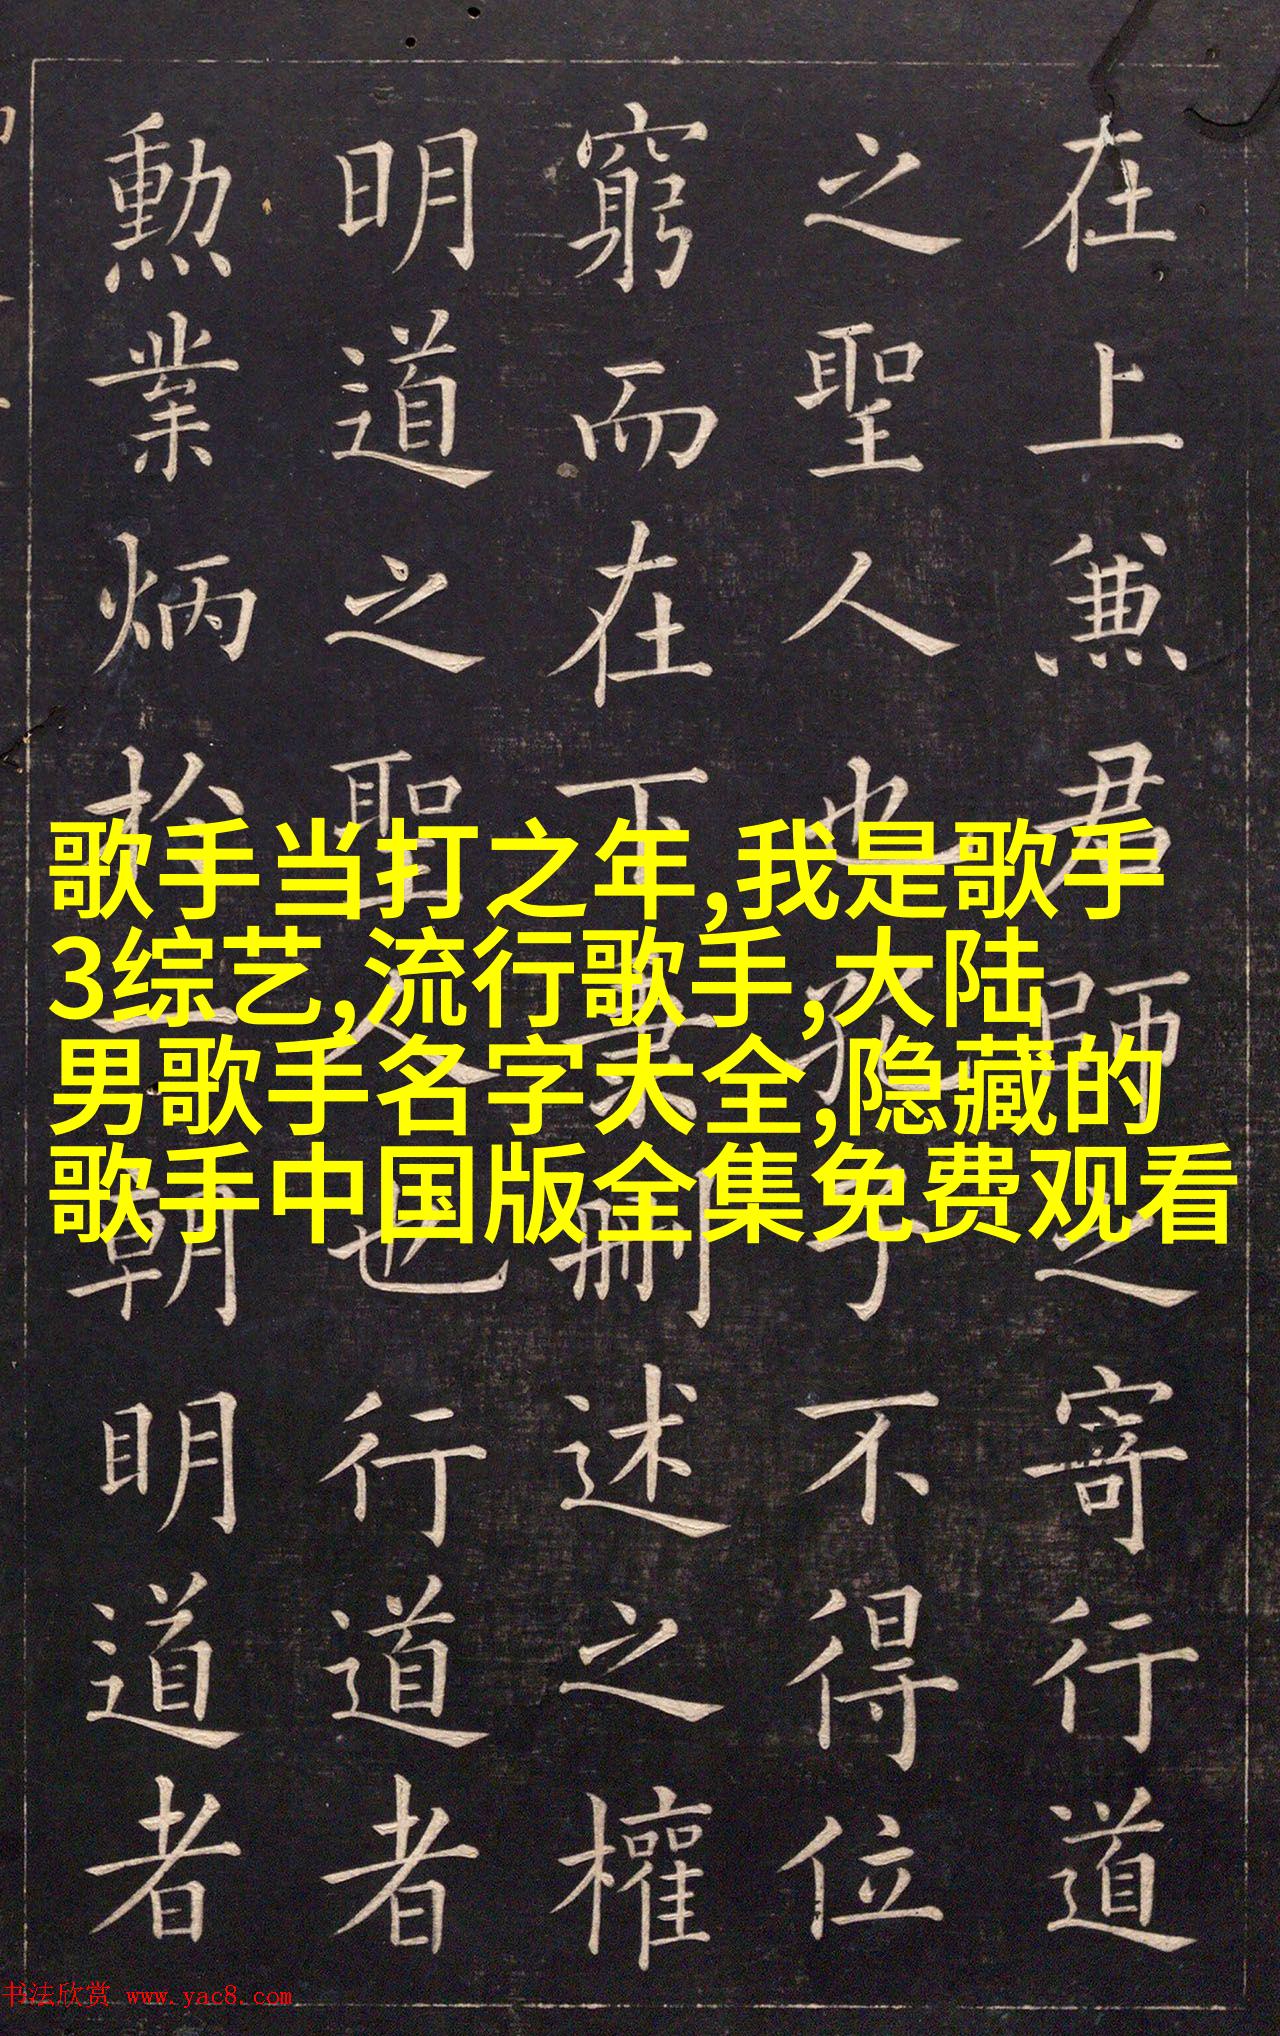 在上兼君師之寄行道
之聖人也孔子不得位
窮而在下秉刪述之權
明道之聖人也行道者
勳業炳於一朝明道者
歌手当打之年,我是歌手
3综艺,流行歌手,大陆
男歌手名字大全,隐藏的
歌手中国版全集免费观看
书法欣赏 www.yac8.com